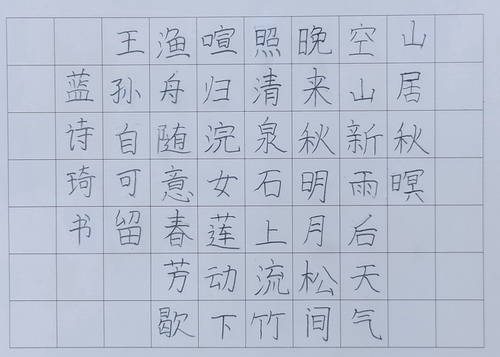 山居秋暝
空山新雨后天气
晚来秋明月松间
照清泉石上流竹
喧归浣女莲动下
渔舟随意春芳歇
王孙自可留
蓝诗琦书